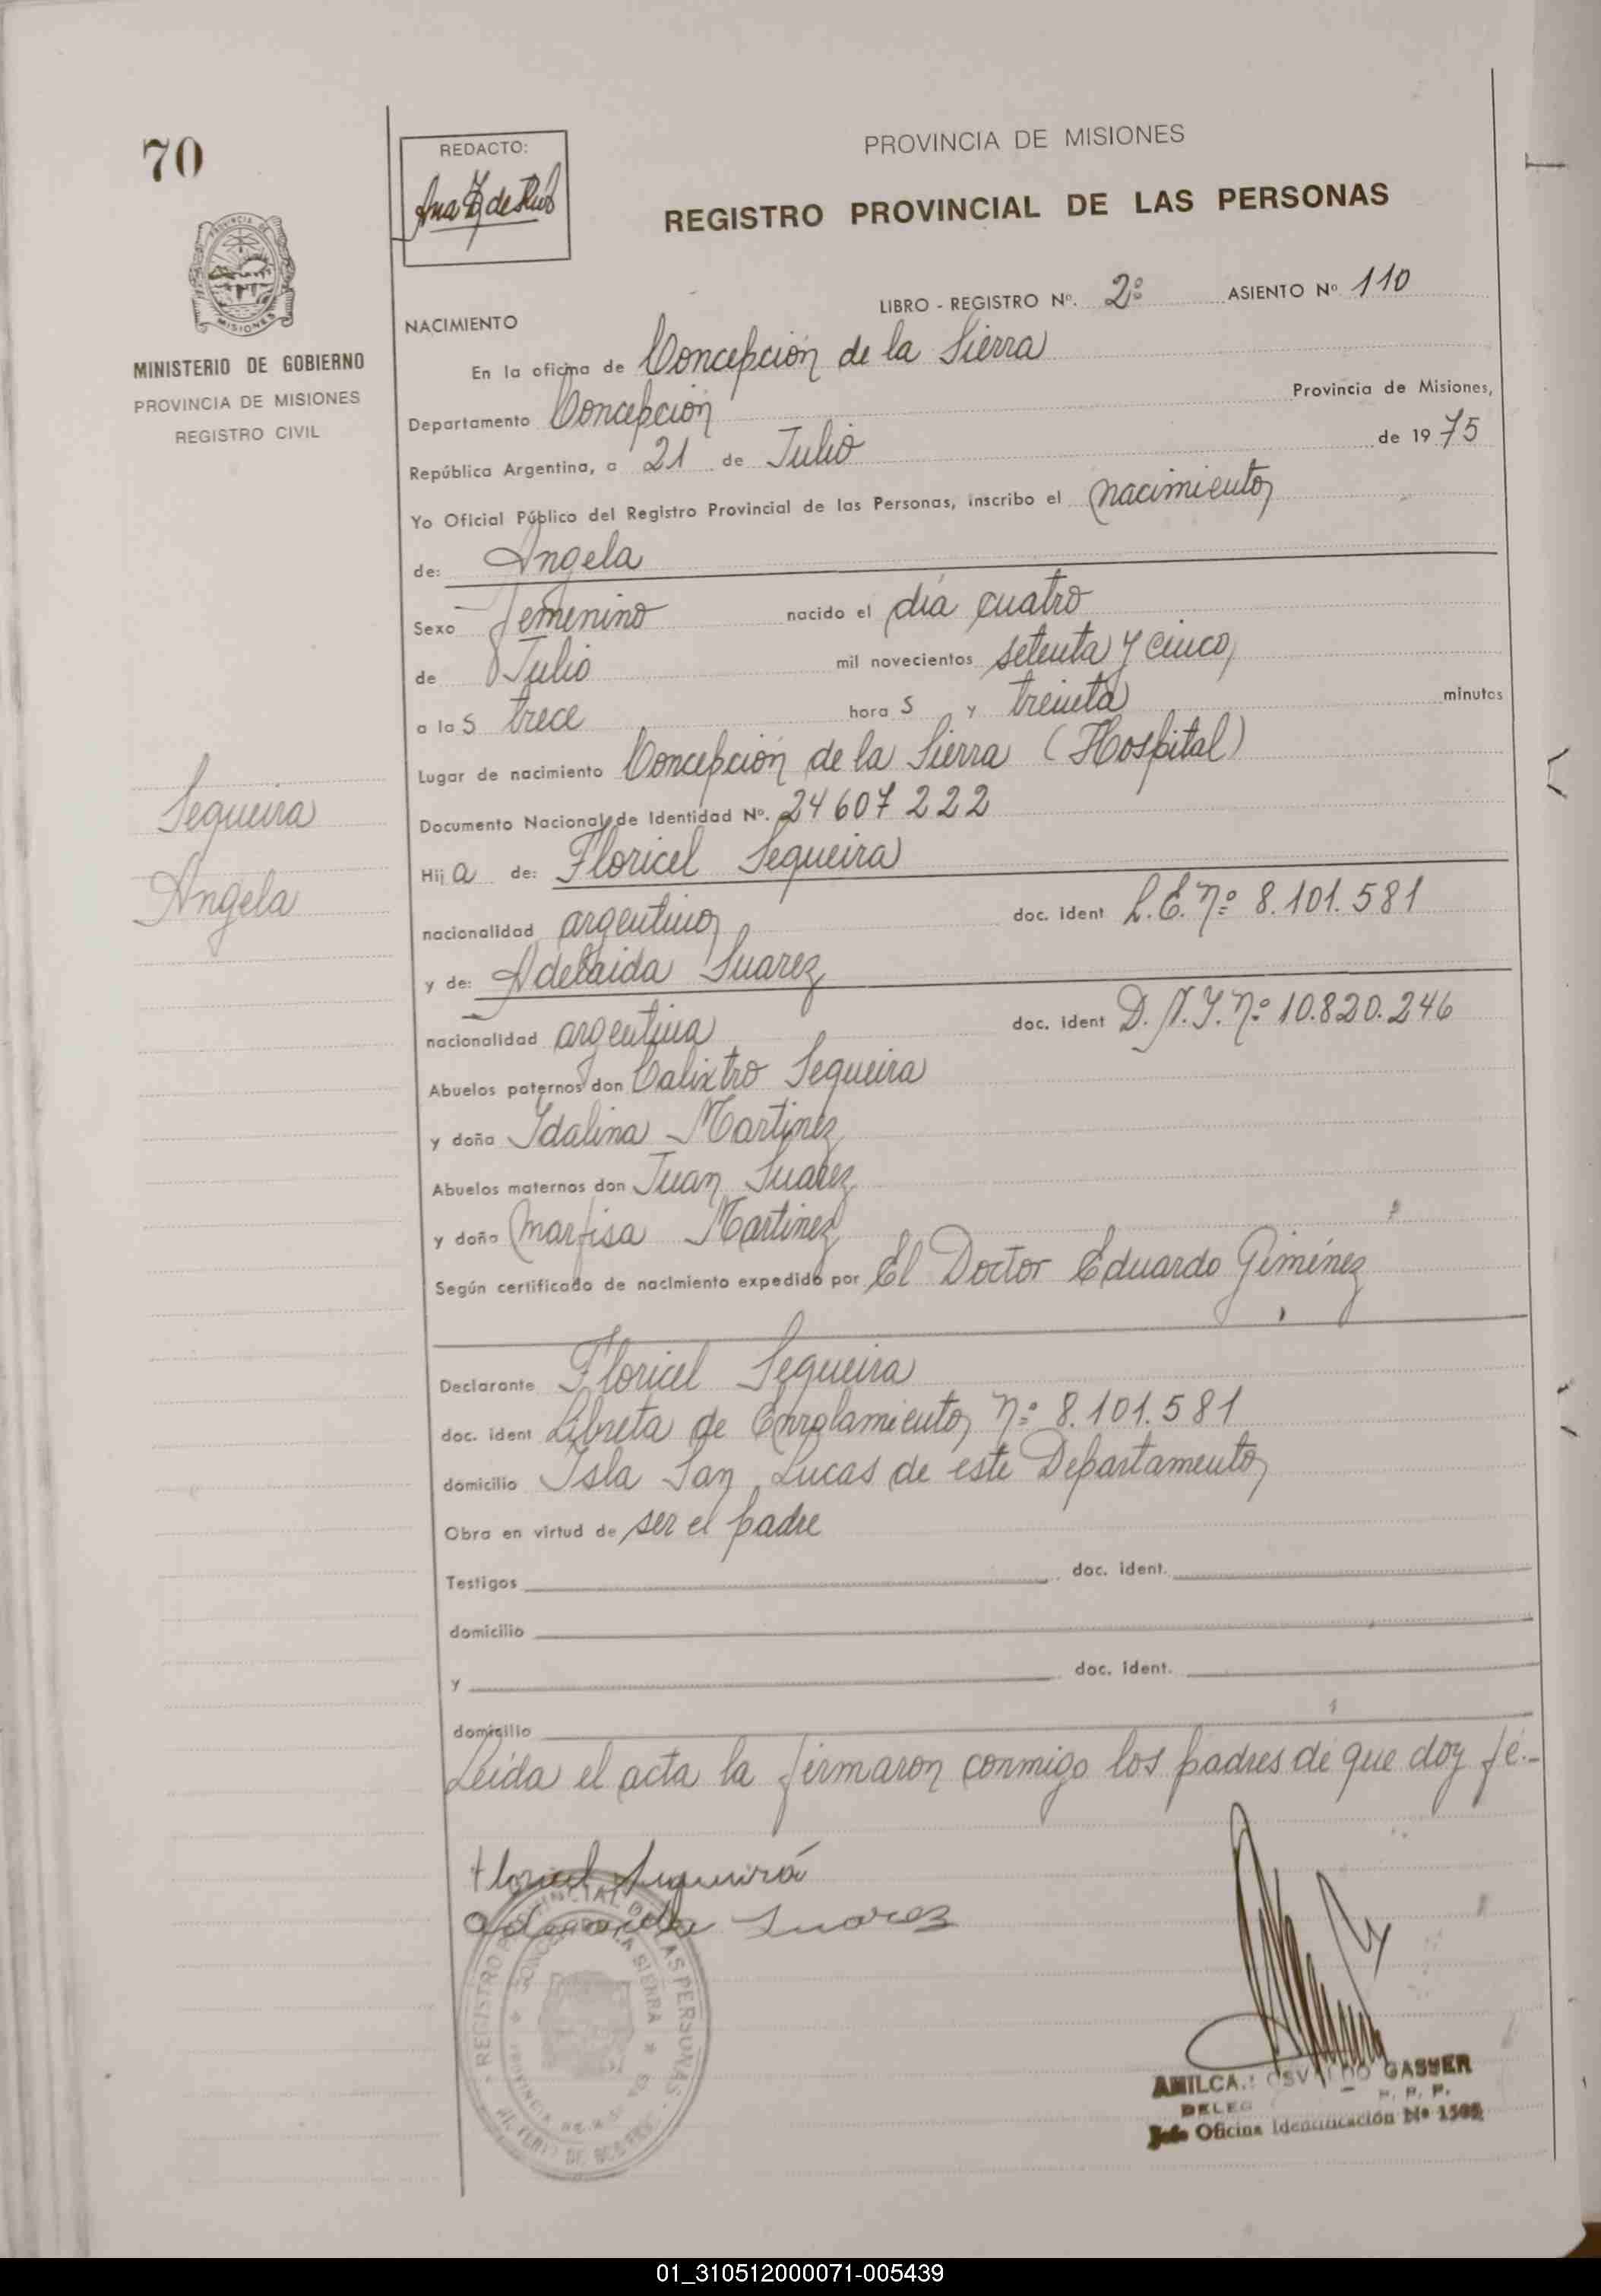 70
REDACTO:
PROVINCIA DE MISIONES
REGISTRO PROVINCIAL DE LAS PERSONAS
PROVINCIA DE
MISIONES
MINISTERIO DE GOBIERNO
PROVINCIA DE MISIONES
REGISTRO CIVIL
LIBRO - REGISTRO Nº. 2º ASIENTO Nº 110
NACIMIENTO
En la oficina de Concepción de la Sierra
Departamento Concepción Provincia de Misiones,
República Argentina, a 21 de Julio de 1975
Yo Oficial Público del Registro Provincial de las Personas, inscribo el nacimiento
de: Angela
Sexo femenino nacido el día cuatro
de Julio mil novecientos setenta y cinco
a las trece horas y treinta minutos
Lugar de nacimiento Concepción de la Sierra (Hospital)
Documento Nacional de Identidad Nº. 24607222
Sequeira
Angela
Hija de: Floricel Sequeira
nacionalidad argentino doc. ident L.E. nº 8.101.581
y de: Adelaida Suarez
nacionalidad argentina doc. ident D.N.I. nº 10.820.246
Abuelos paternos don Calixtro Sequeira
y doña Idalina Martinez
Abuelos maternos don Juan Suarez
y doña Marfisa Martinez
Según certificado de nacimiento expedido por El Doctor Eduardo Giménez
Declarante Floricel Sequeira
doc. ident Libreta de Enrolamiento nº 8.101.581
domicilio Isla San Lucas de este Departamento
Obra en virtud de ser el padre
Testigos doc. ident.
domicilio
y doc. ident.
domicilio
Leída el acta la firmaron conmigo los padres de que doy fé.-
Floricel Sequeira
Adelaida Suarez
REGISTRO PROVINCIAL DE LAS PERSONAS
CONCEPCION DE LA SIERRA
OSVALDO GASNER
R. P. P.
Jefe Oficina Identificación Nº
01_310512000071-005439